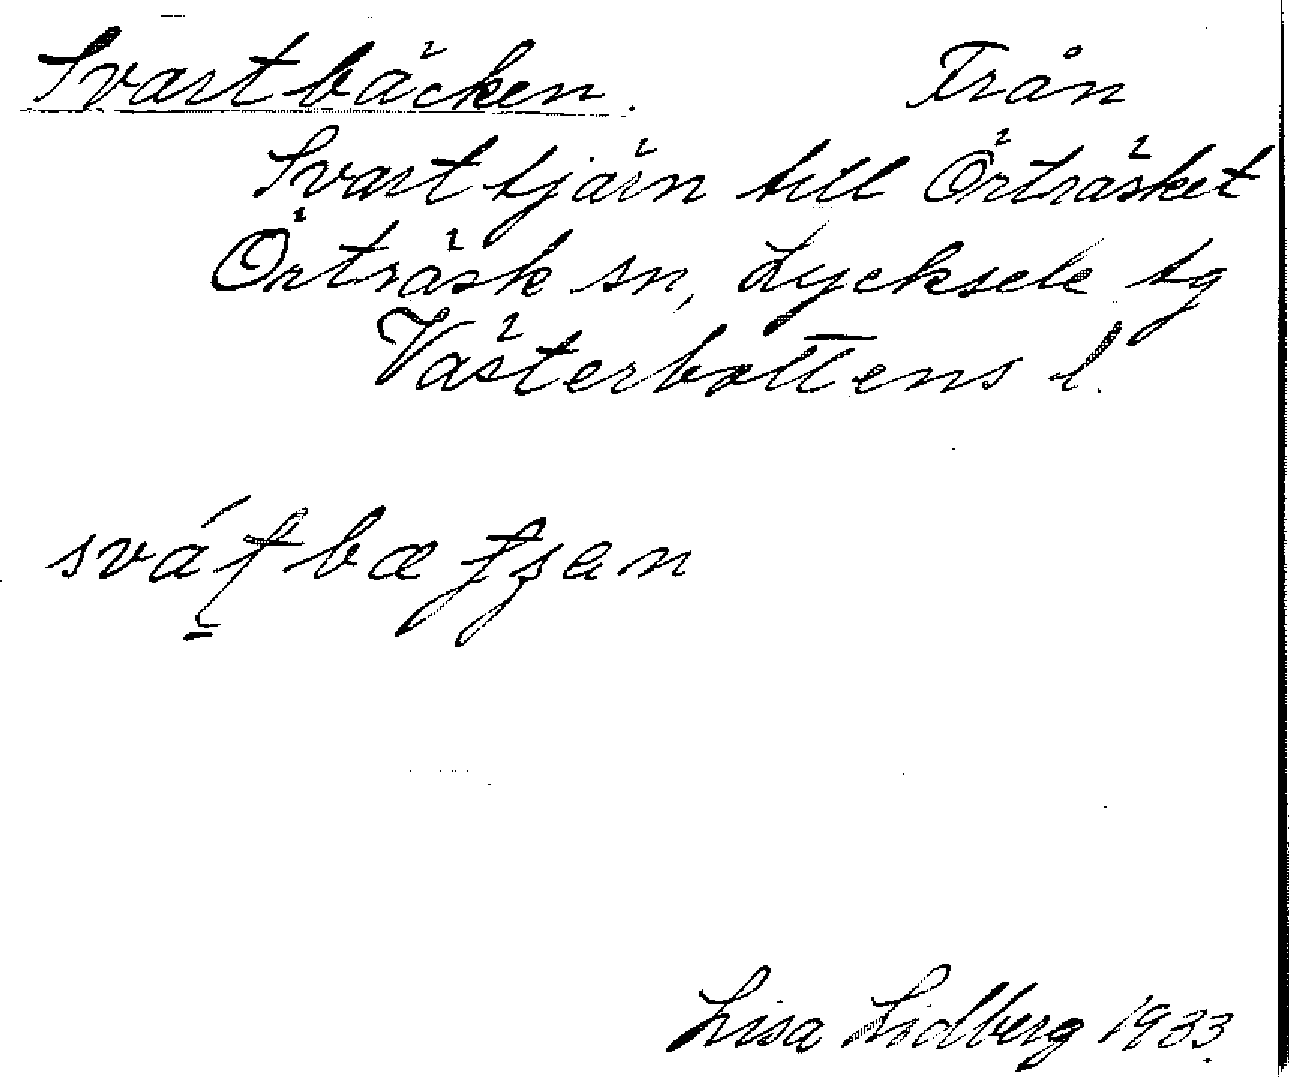 Svartbäcken. Från
Svarttjärn till Örträsket
Örträsk sn, Lycksele tg
Västerbottens l.
Lisa Lidberg 1933.